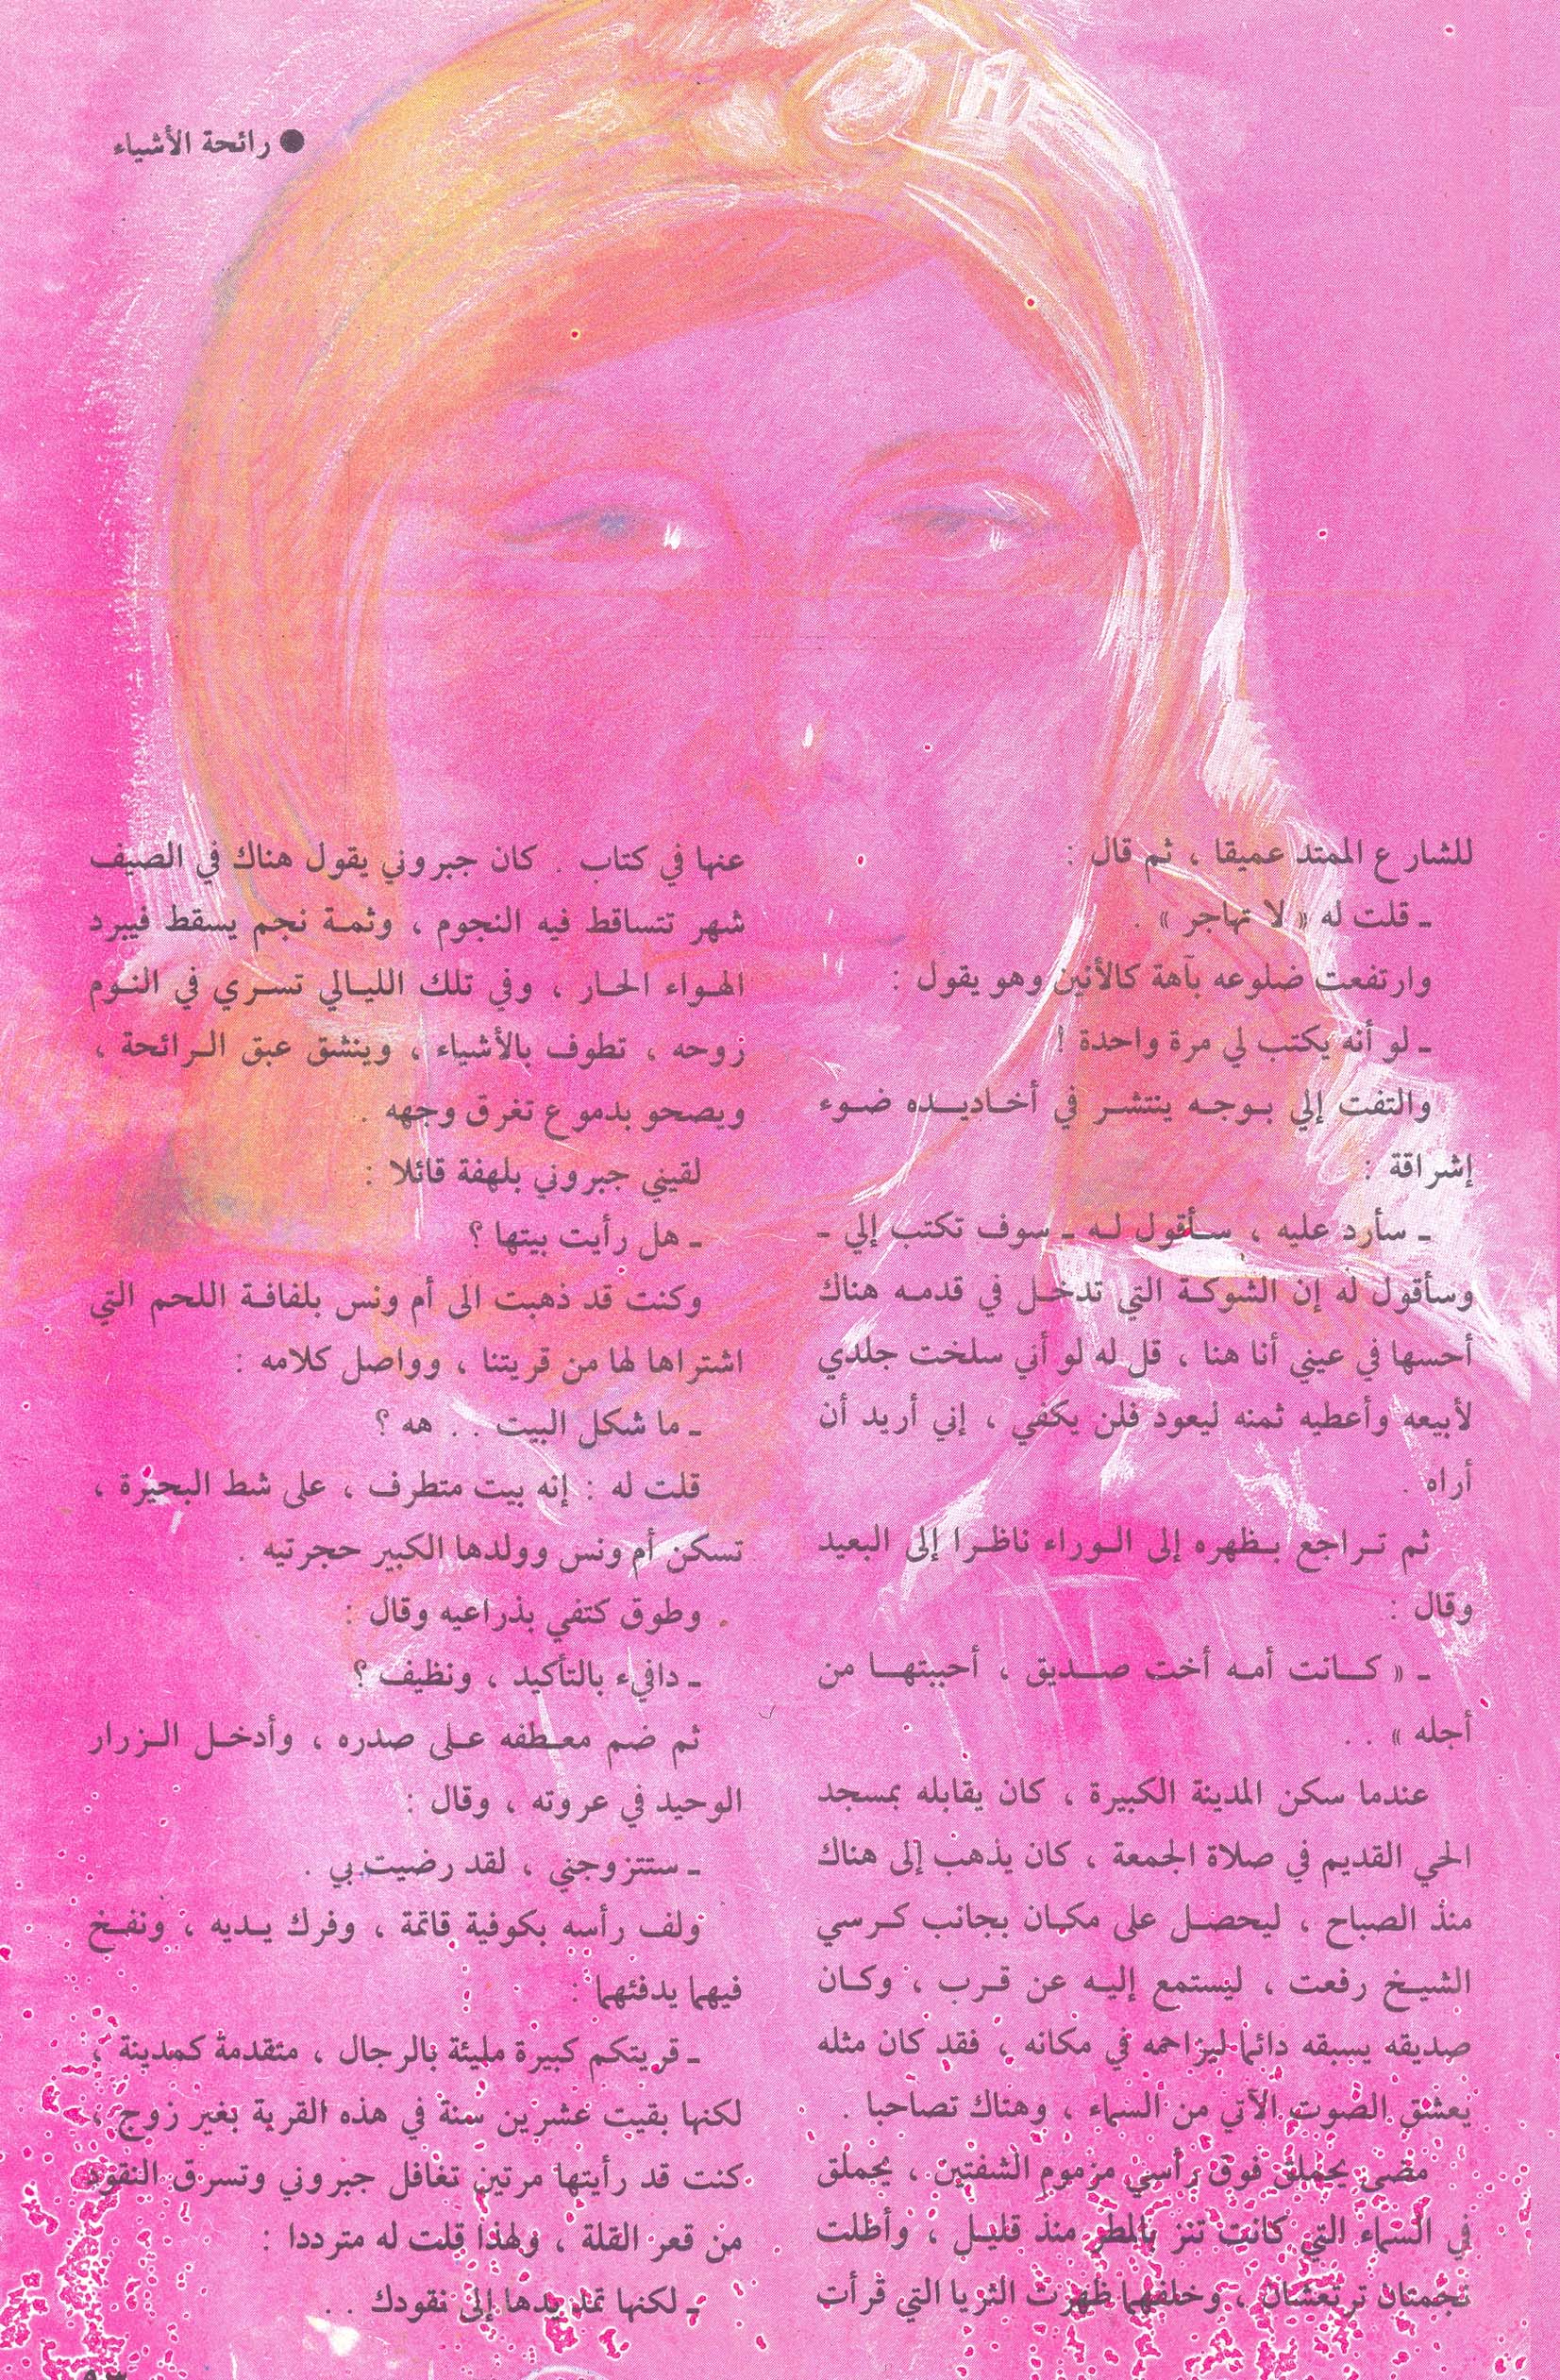 ● رائحة الأشياء
للشارع الممتد عميقا ، ثم قال :
ـ قلت له « لا تهاجر » .
وارتفعت ضلوعه بآهة كالأنين وهو يقول :
ـ لو أنه يكتب لي مرة واحدة !
والتفت إلي بوجه ينتشر في أخاديده ضوء
إشراقة :
ـ سأرد عليه ، سأقول له ـ سوف تكتب إلي ـ
وسأقول له إن الشوكة التي تدخل في قدمه هناك
أحسها في عيني أنا هنا ، قل له لو أني سلخت جلدي
لأبيعه وأعطيه ثمنه ليعود فلن يكفي ، إني أريد أن
أراه .
ثم تراجع بظهره إلى الوراء ناظرا إلى البعيد
وقال :
ـ « كانت أمه أخت صديق ، أحببتها من
أجله » . .
عندما سكن المدينة الكبيرة ، كان يقابله بمسجد
الحي القديم في صلاة الجمعة ، كان يذهب إلى هناك
منذ الصباح ، ليحصل على مكان بجانب كرسي
الشيخ رفعت ، ليستمع إليه عن قرب ، وكان
صديقه يسبقه دائما ليزاحمه في مكانه ، فقد كان مثله
يعشق الصوت الآتي من السماء ، وهناك تصاحبا .
مضى يحملق فوق رأسي مزموم الشفتين ، يحملق
في السماء التي كانت تنز بالمطر منذ قليل ، وأطلت
نجمتان ترتعشان ، وخلفهما ظهرت الثريا التي قرأت
عنها في كتاب . كان جبروني يقول هناك في الصيف
شهر تتساقط فيه النجوم ، وثمة نجم يسقط فيبرد
الهواء الحار ، وفي تلك الليالي تسري في النوم
روحه ، تطوف بالأشياء ، وينشق عبق الرائحة ،
ويصحو بدموع تغرق وجهه .
لقيني جبروني بلهفة قائلا :
ـ هل رأيت بيتها ؟
وكنت قد ذهبت الى أم ونس بلفافة اللحم التي
اشتراها لها من قريتنا ، وواصل كلامه :
ـ ما شكل البيت . . هه ؟
قلت له : إنه بيت متطرف ، على شط البحيرة ،
تسكن أم ونس وولدها الكبير حجرتيه .
وطوق كتفي بذراعيه وقال :
ـ دافيء بالتأكيد ، ونظيف ؟
ثم ضم معطفه على صدره ، وأدخل الزرار
الوحيد في عروته ، وقال :
ـ ستتزوجني ، لقد رضيت بي .
ولف رأسه بكوفية قاتمة ، وفرك يديه ، ونفخ
فيهما يدفئهما :
ـ قريتكم كبيرة مليئة بالرجال ، متقدمة كمدينة ،
لكنها بقيت عشرين سنة في هذه القرية بغير زوج ،
كنت قد رأيتها مرتين تغافل جبروني وتسرق النقود
من قعر القلة ، ولهذا قلت له مترددا :
ـ لكنها تمد يدها إلى نقودك . .